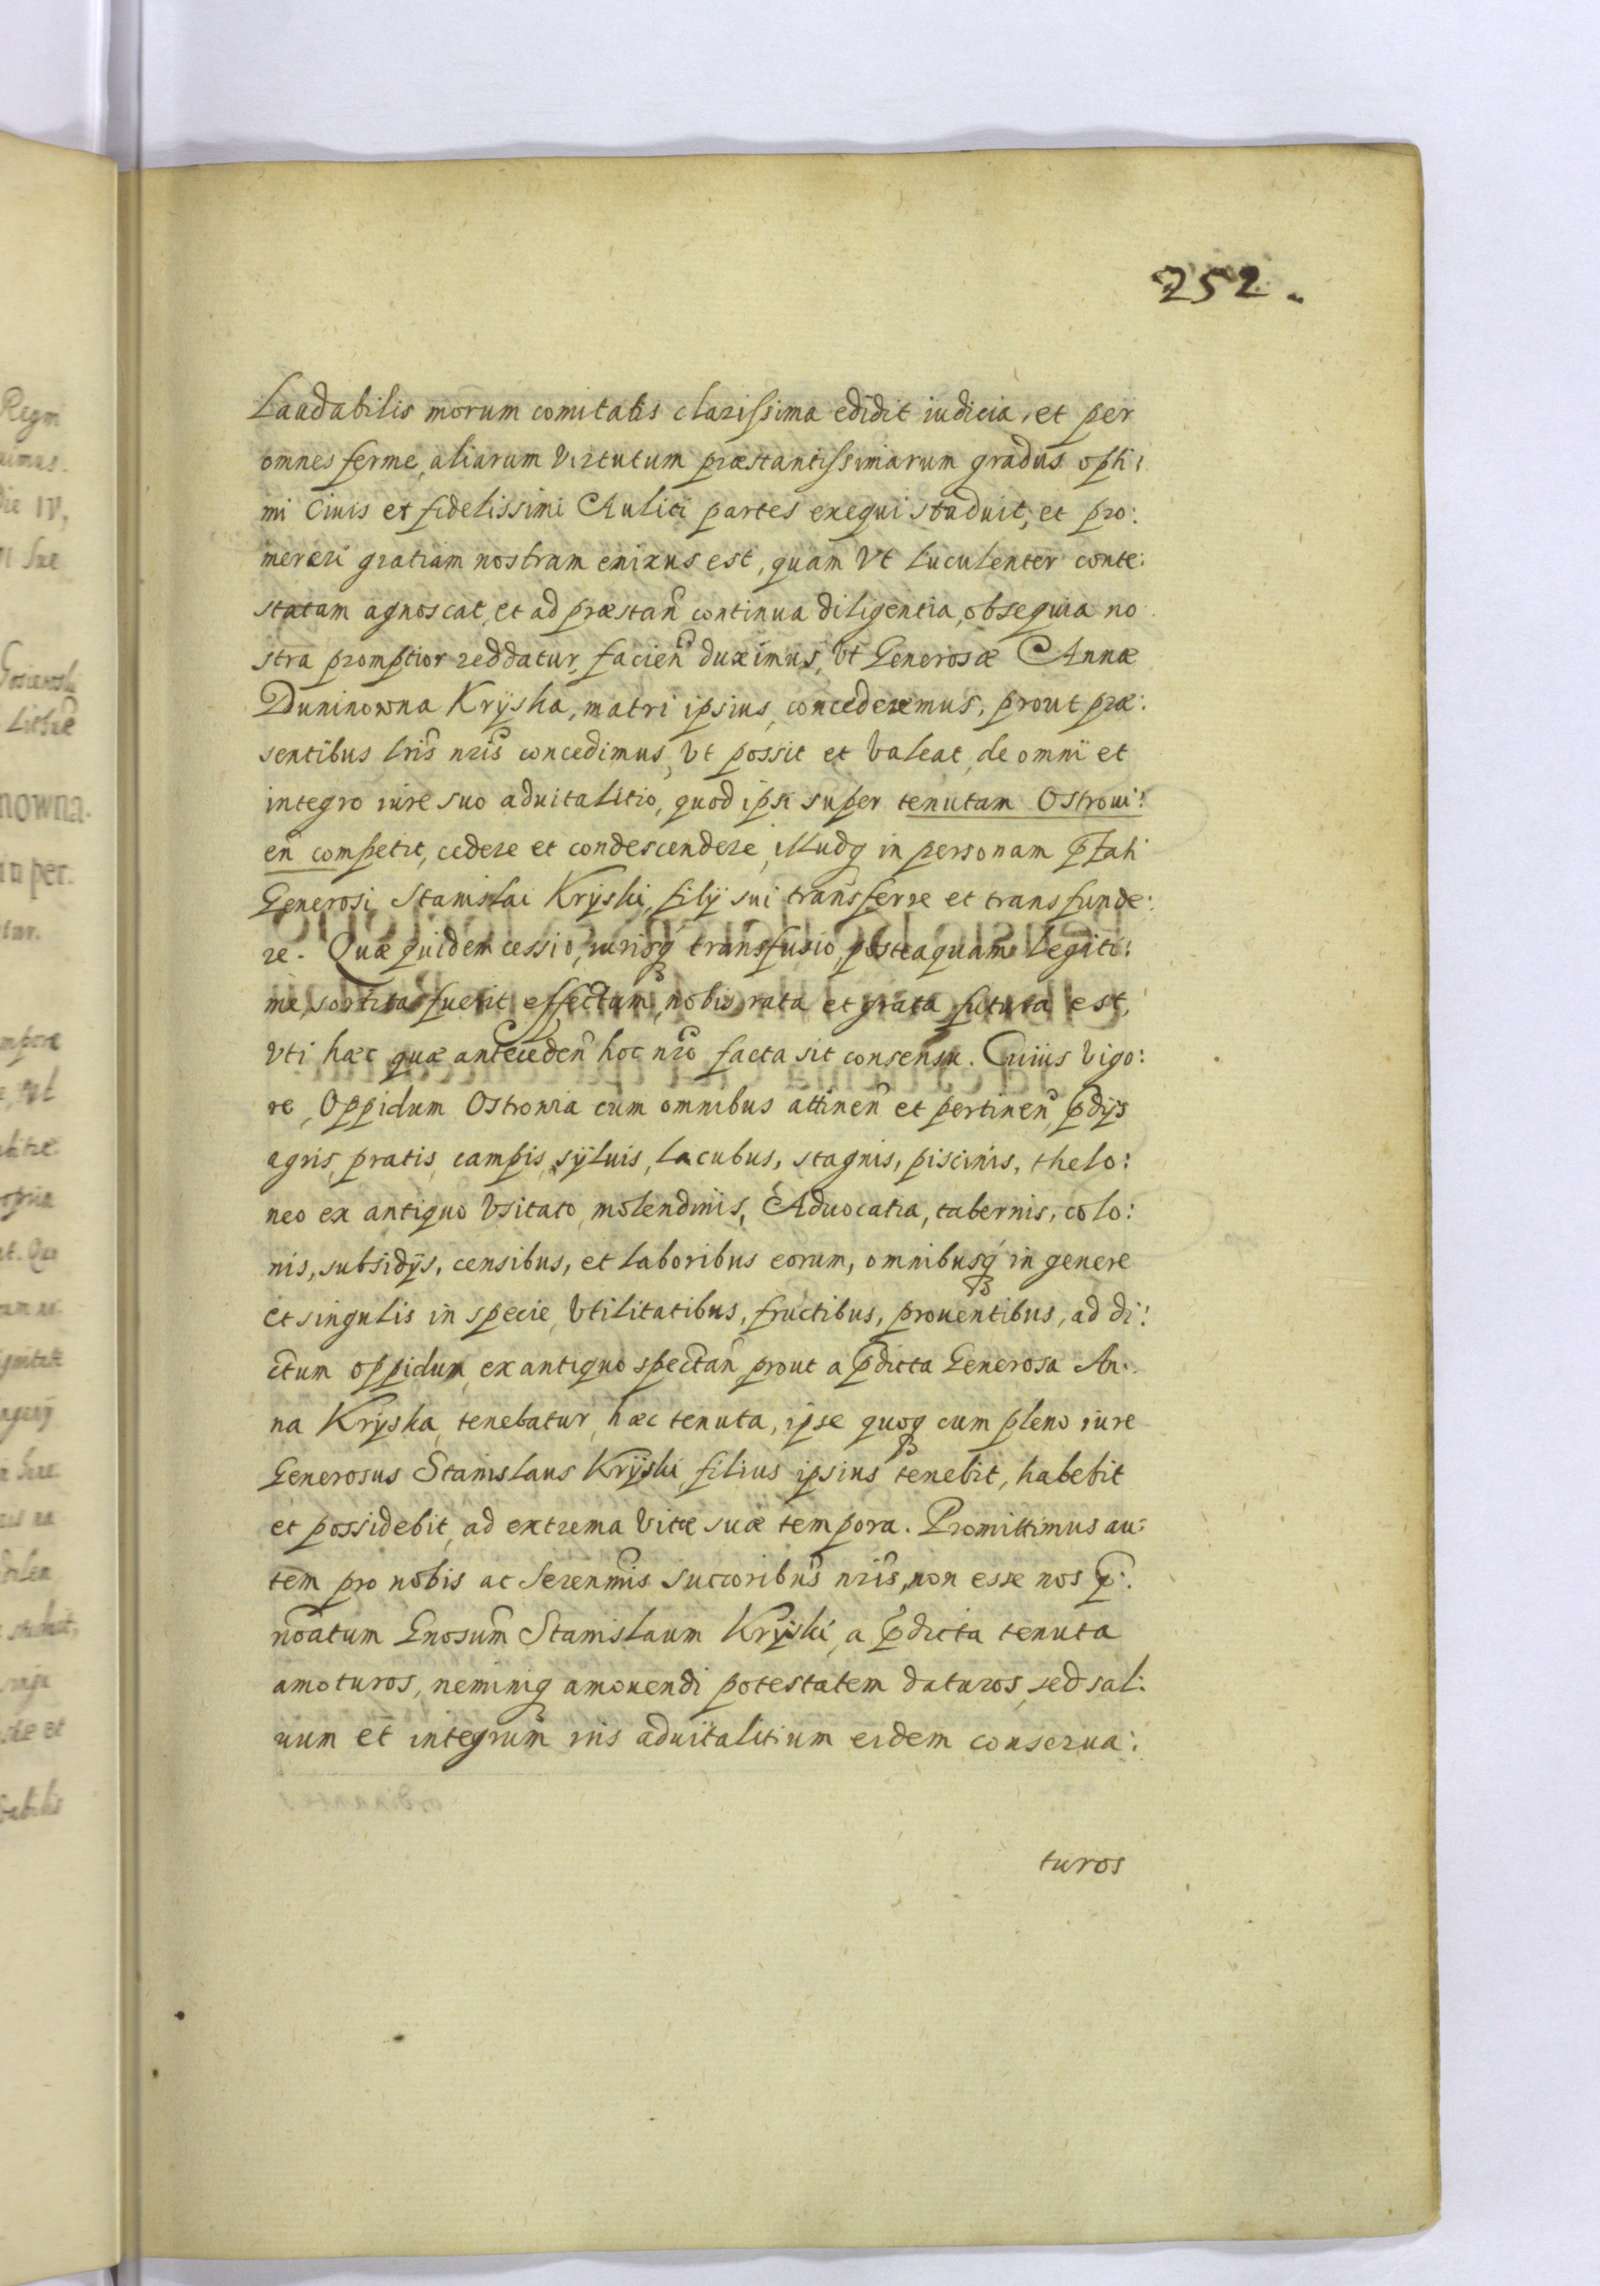 252.
Laudabilis morum comitatis clarissima edidit iudicia, et per
omnes ferme, aliarum virtutum præstantissimarum gradus opti:
mi Ciuis et fidelissimi Aulici partes exequi studuit, et pro:
mereri gratiam nostram enixus est, quam Vt luculenter conte:
statam agnoscat, et ad præstan̄ continua diligentia, obsequia no
stra promptior reddatur, facien̄ duximus, Vt Generosæ Annæ
Duninowna Kryska, matri ipsius, concederemus, prout præ:
sentibus lris nris concedimus, Vt possit et valeat, de omni et
integro iure suo aduitalitio, quod ipsi super tenutam Ostroui:
en̄ competit, cedere et condescendere, illudq in personam p̄fati
Generosi Stanislai Kryski, filÿ sui transferre et transfunde:
re. Quæ quidem cessio, iurisq transfusio, posteaquam legiti:
me, sortita fuerit effectum, nobis rata et grata futura est,
Vti hæc quæ anteceden̄ hoc nro facta sit consensu. Cuius Vigo:
re, Oppidum Ostrowia cum omnibus attinen̄ et pertinen̄, p̄dÿs
agris, pratis, campis, syluis, lacubus, stagnis, piscinis, thelo:
neo ex antiquo Vsitato, molendinis, Aduocatia, tabernis, colo:
nis, subsidÿs, censibus, et laboribus eorum, omnibusq in genere
et singulis in specie, Vtilitatibus, fructibus, prouentibus, ad di:
ctum oppidum, ex antiquo spectan̄, prout a p̄dicta Generosa An:
na Kryska, tenebatur, hæc tenuta, ipse quoq cum pleno iure
Generosus Stanislaus Kryski, filius ipsius tenebit, habebit
et possidebit, ad extrema Vitæ suæ tempora. Promittimus au:
tem pro nobis ac Serenmis Succoribus nris, non esse nos p̄:
noatum Gnosum Stanislaum Kryski, a p̄dicta tenuta
amoturos, neminiq amouendi potestatem daturos, sed sal:
uum et integrum ius aduitalitium eidem conserua:
turos